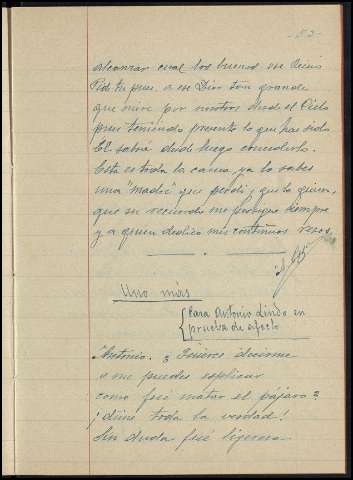 - 52 -
alcanzar cual los buenos
Pide tu pues, a ese Dios tan grande
que mire por nosotros desde el Cielo
pues teniendo presente lo que has sido
El sabrá desde luego concederlo.
Esta es toda la causa ya lo sabes
una "madre" que perdí, que la quiero,
que su recuerdo me persigue siempre
y a quien dedico mis continuos rezos.
Uno más
Para Antonio Lindo en
prueba de afecto
Antonio. ¿Quieres decirme
o me puedes explicar
como fué matar el pájaro?
¡dime toda la verdad!
Sin duda fué ligereza